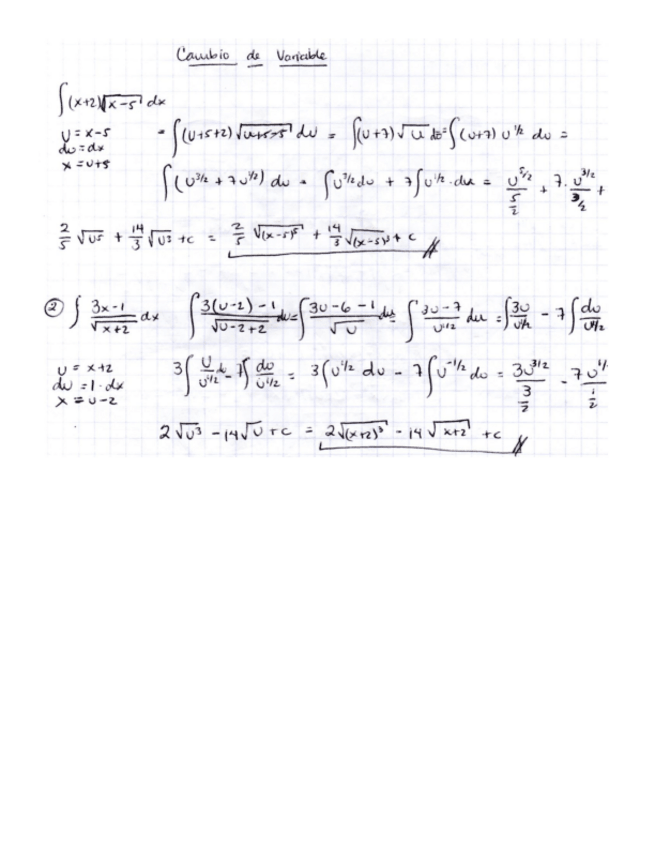 Cambio de Variable
∫(x+2)√(x-5) dx
u = x-5 = ∫(u+5+2)√(u+5-5) du = ∫(u+7)√u du = ∫(u+7) u^1/2 du =
du = dx
x = u+5
∫(u^3/2 + 7u^1/2) du = ∫u^3/2 du + 7∫u^1/2 · du = u^5/2 / 5/2 + 7 · u^3/2 / 3/2 +
2/5 √u⁵ + 14/3 √u³ + c = 2/5 √(x-5)⁵ + 14/3 √(x-5)³ + c
② ∫ (3x-1)/√(x+2) dx ∫ (3(u-2)-1)/√(u-2+2) du = ∫ (3u-6-1)/√u du = ∫ (3u-7)/u^1/2 du = ∫ 3u/u^1/2 - 7∫ du/u^1/2
u = x+2
du = 1·dx
x = u-2
3∫ u/u^1/2 du - 7∫ du/u^1/2 = 3∫u^1/2 du - 7∫u^-1/2 du = 3u^3/2 / 3/2 - 7u^1/ / 1/2
2√u³ - 14√u + c = 2√(x+2)³ - 14√(x+2) + c